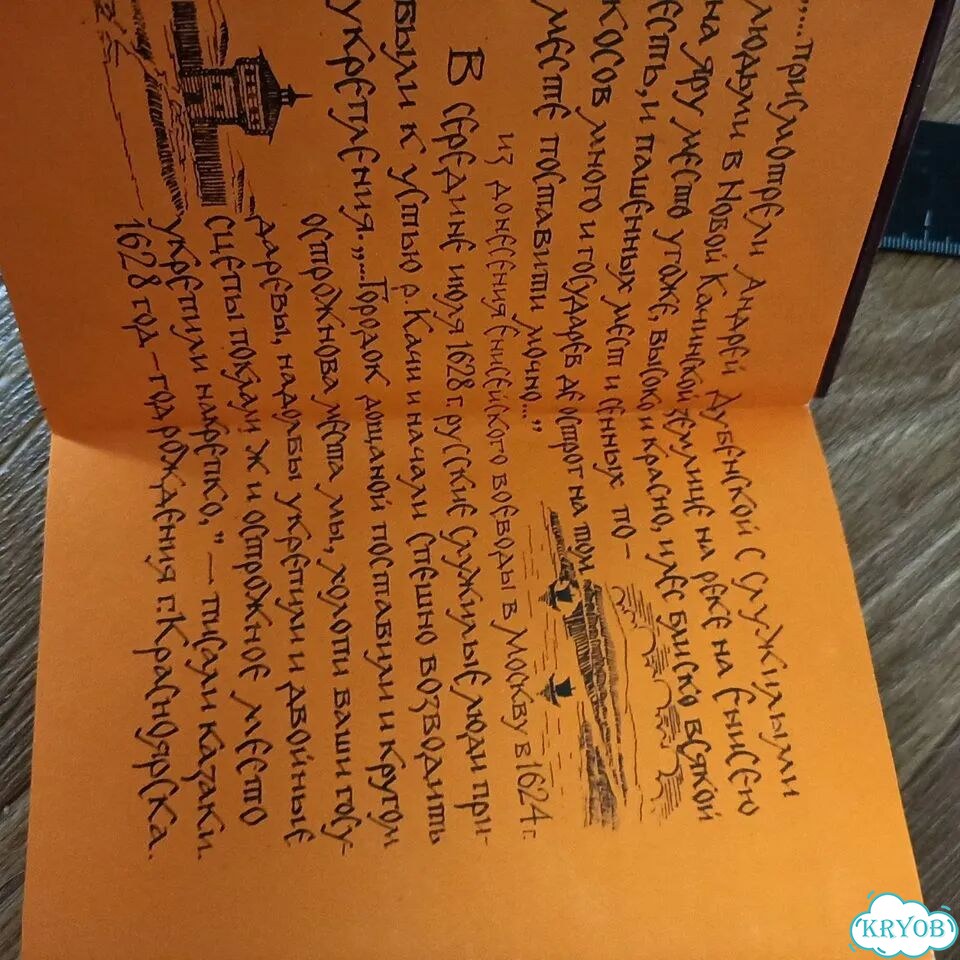 „...присмотрели Андрей Дубенской с служилыми
людьми в Новой Качинской землице на реке на Енисею
на яру место угоже, высоко и красно, и лес блиско всякой
есть, и пашенных мест и сенных по-
косов много и государев де острог на том
месте поставити мочно..."
из донесения енисейского воеводы в Москву в 1624 г.
В середине июля 1628 г. русские служилые люди при-
были к устью р. Качи и начали спешно возводить
укрепления. „...Городок дощаной поставили и кругом
острожнова места мы, холопи ваши госу-
даревы, надолбы укрепили и двойные
сцепы поклали ж и острожное место
укрепили накрепко," — писали казаки.
1628 год — год рождения г. Красноярска.
KRYOB